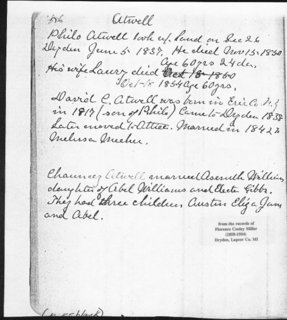 Atwell
Philo Atwell took up Land on Sec 26
Dryden June 5. 1837. He died Nov 13. 1850
Age 60 yrs 24 ds.
His wife Laury died Oct 13 1860
Oct 18 1854 Age 60 yrs.
David C. Atwell was born in Erie Co. N.Y
in 1817 (son of Philo) Came to Dryden 1838
Later moved to Attica. Married in 1842 to
Melissa
Chauncey Atwell married Asenath Williams
daughter of Abel Williams and Gibbs.
They had three children, Austin Eliza Jane
and Abel.
from the records of
Florence Cooley Miller
Dryden, Lapeer Co. MI